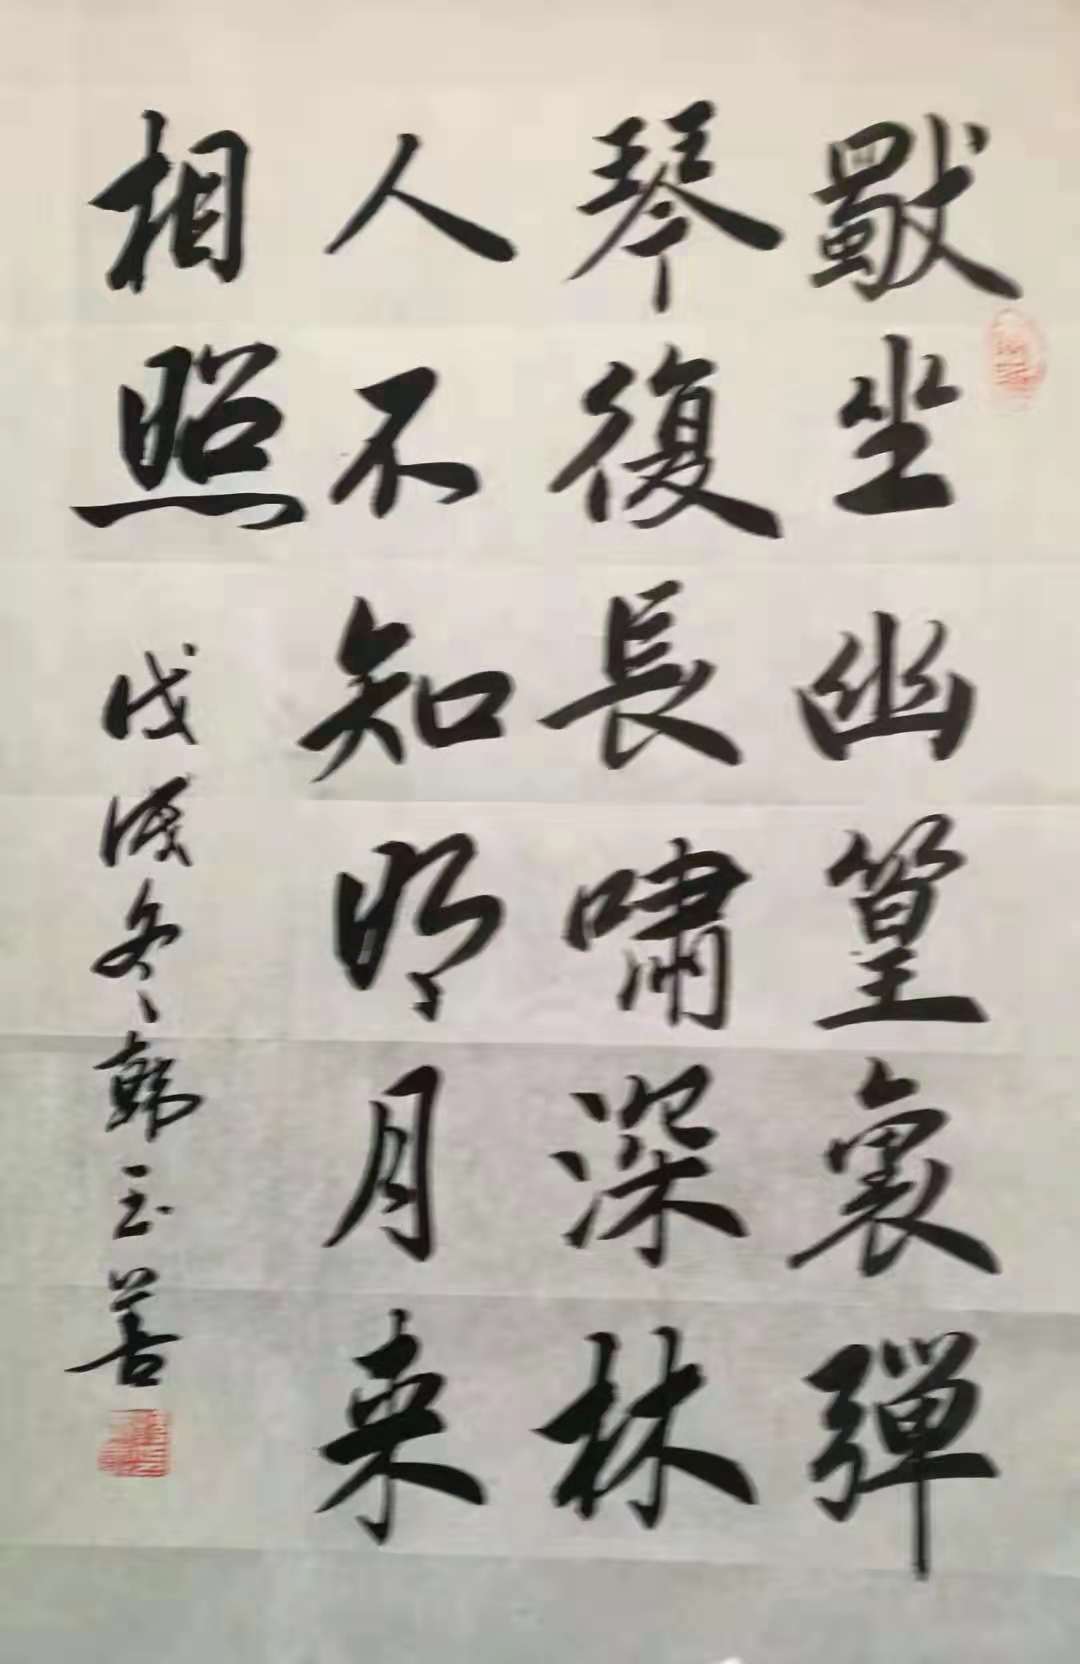 獨坐幽篁裏彈
琴復長嘯深林
人不知明月来
相照
戊戌冬韓玉善